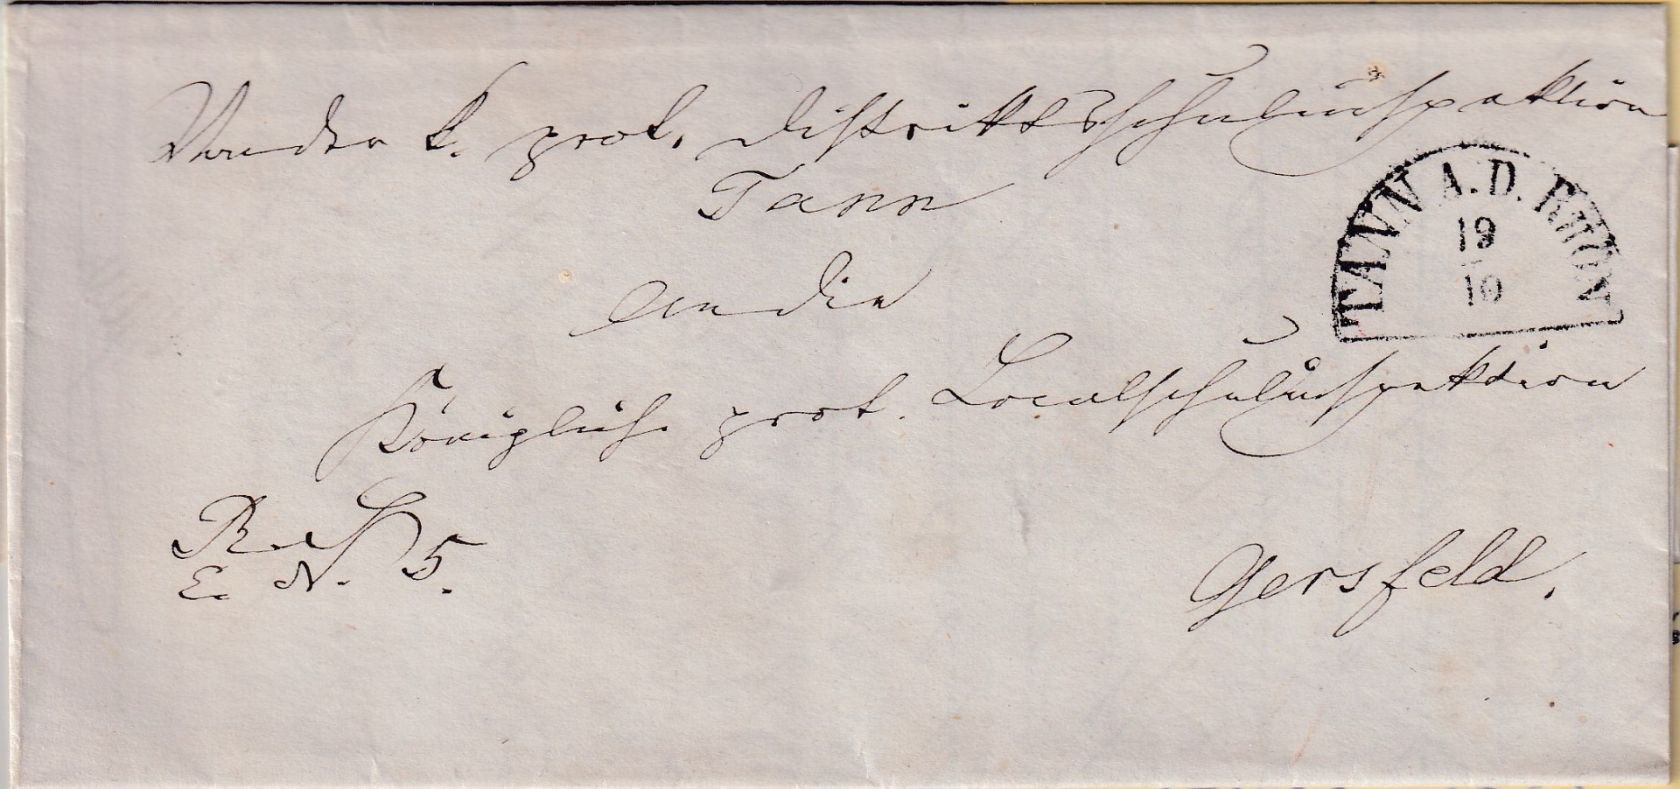 Von der k. prot. Distriktsschulinspektion
Tann
TANN A.D. RHÖN
19
10
an die
Königliche prot. Localschulinspektion
R. S.
E. N. 5.
Gersfeld.